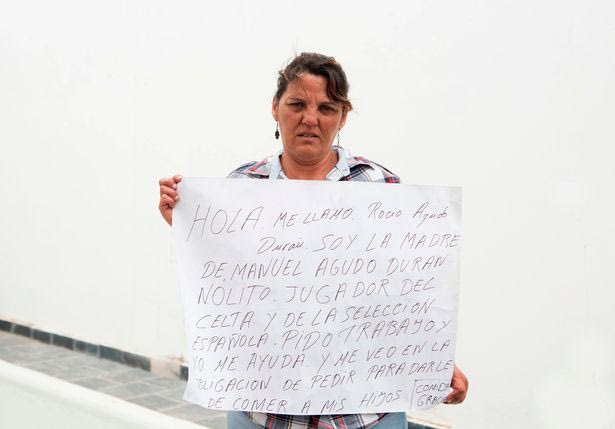 HOLA. ME LLAMO. Rocio Agudo
Duran. SOY LA MADRE
DE. MANUEL AGUDO DURAN
NOLITO. JUGADOR DEL
CELTA Y DE LA SELECCION
ESPAÑOLA. PIDO TRABAJO Y
NO ME AYUDA Y ME VEO EN LA
OBLIGACION DE PEDIR PARA DARLE
DE COMER A MIS HIJOS COMIDA
GRACIAS